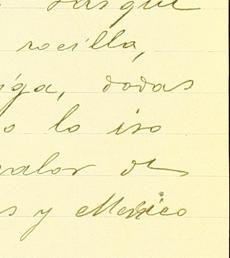 rosilla,
iga, dodas
o lo iso
valor de
s y Mexico